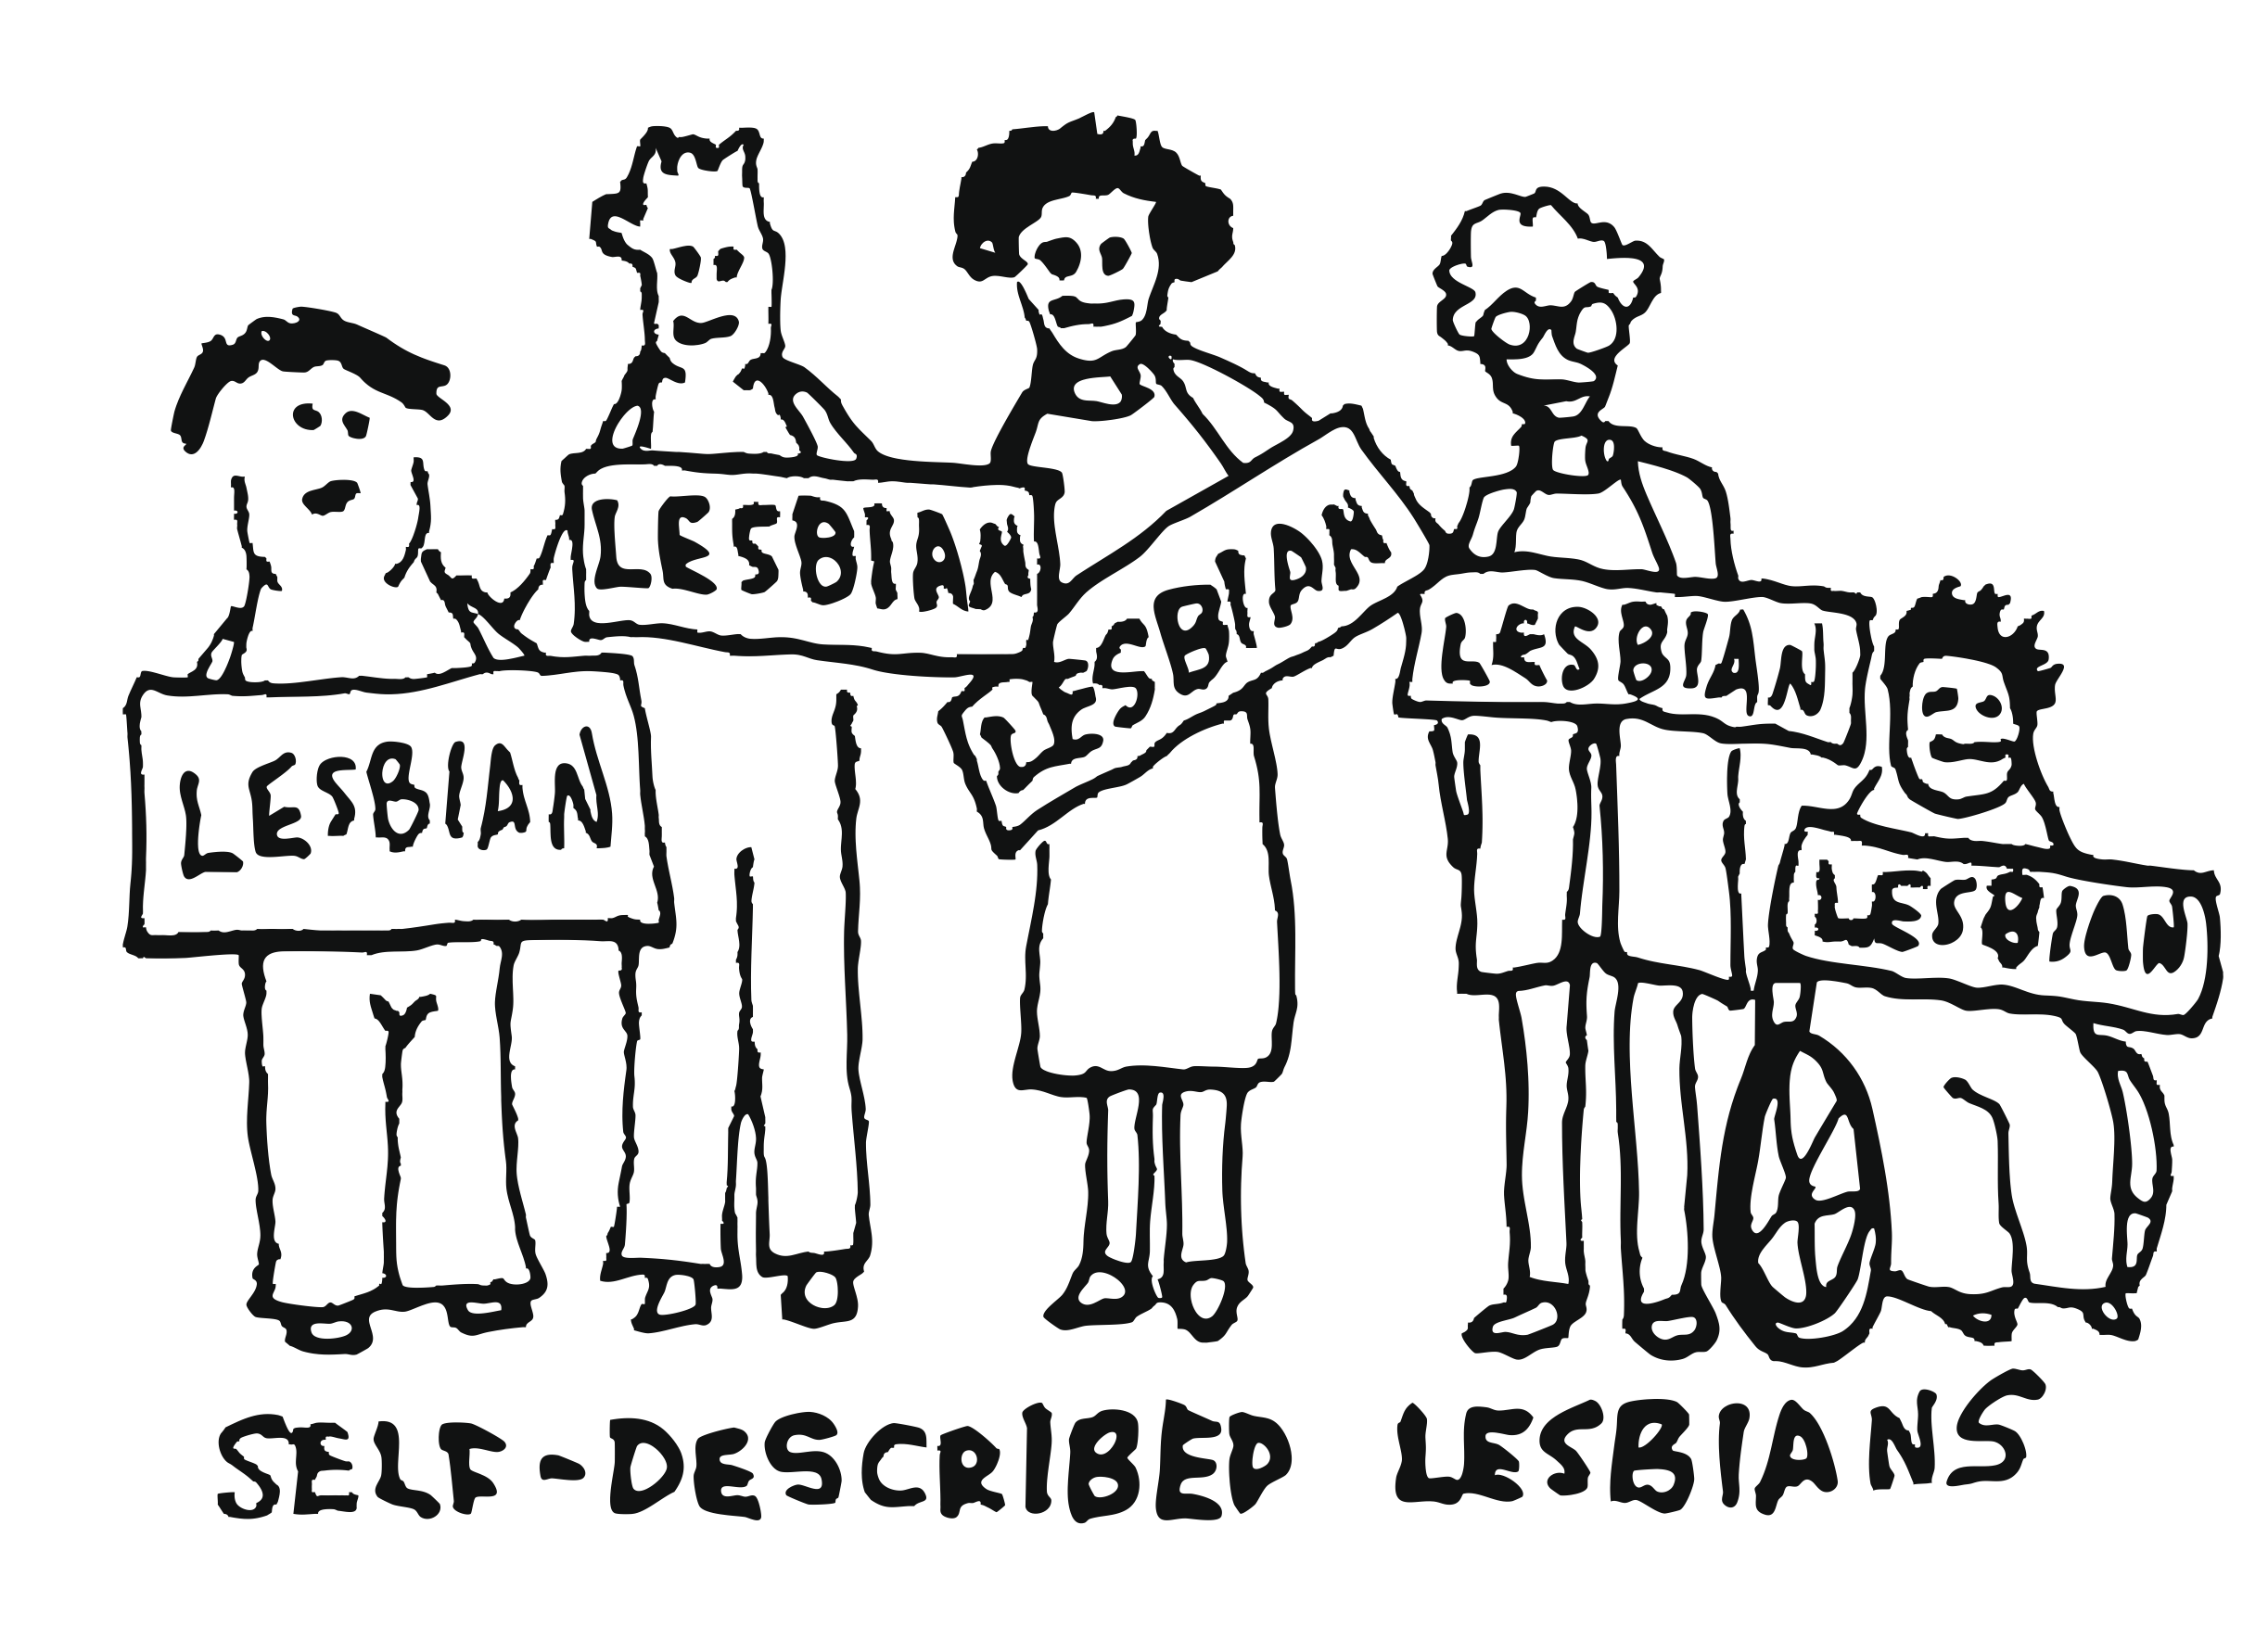 LESBIAN
LESBIAN
LESBIAN
LESBIAN
LESBIAN
SELF-DESCRIBED LESBIANS